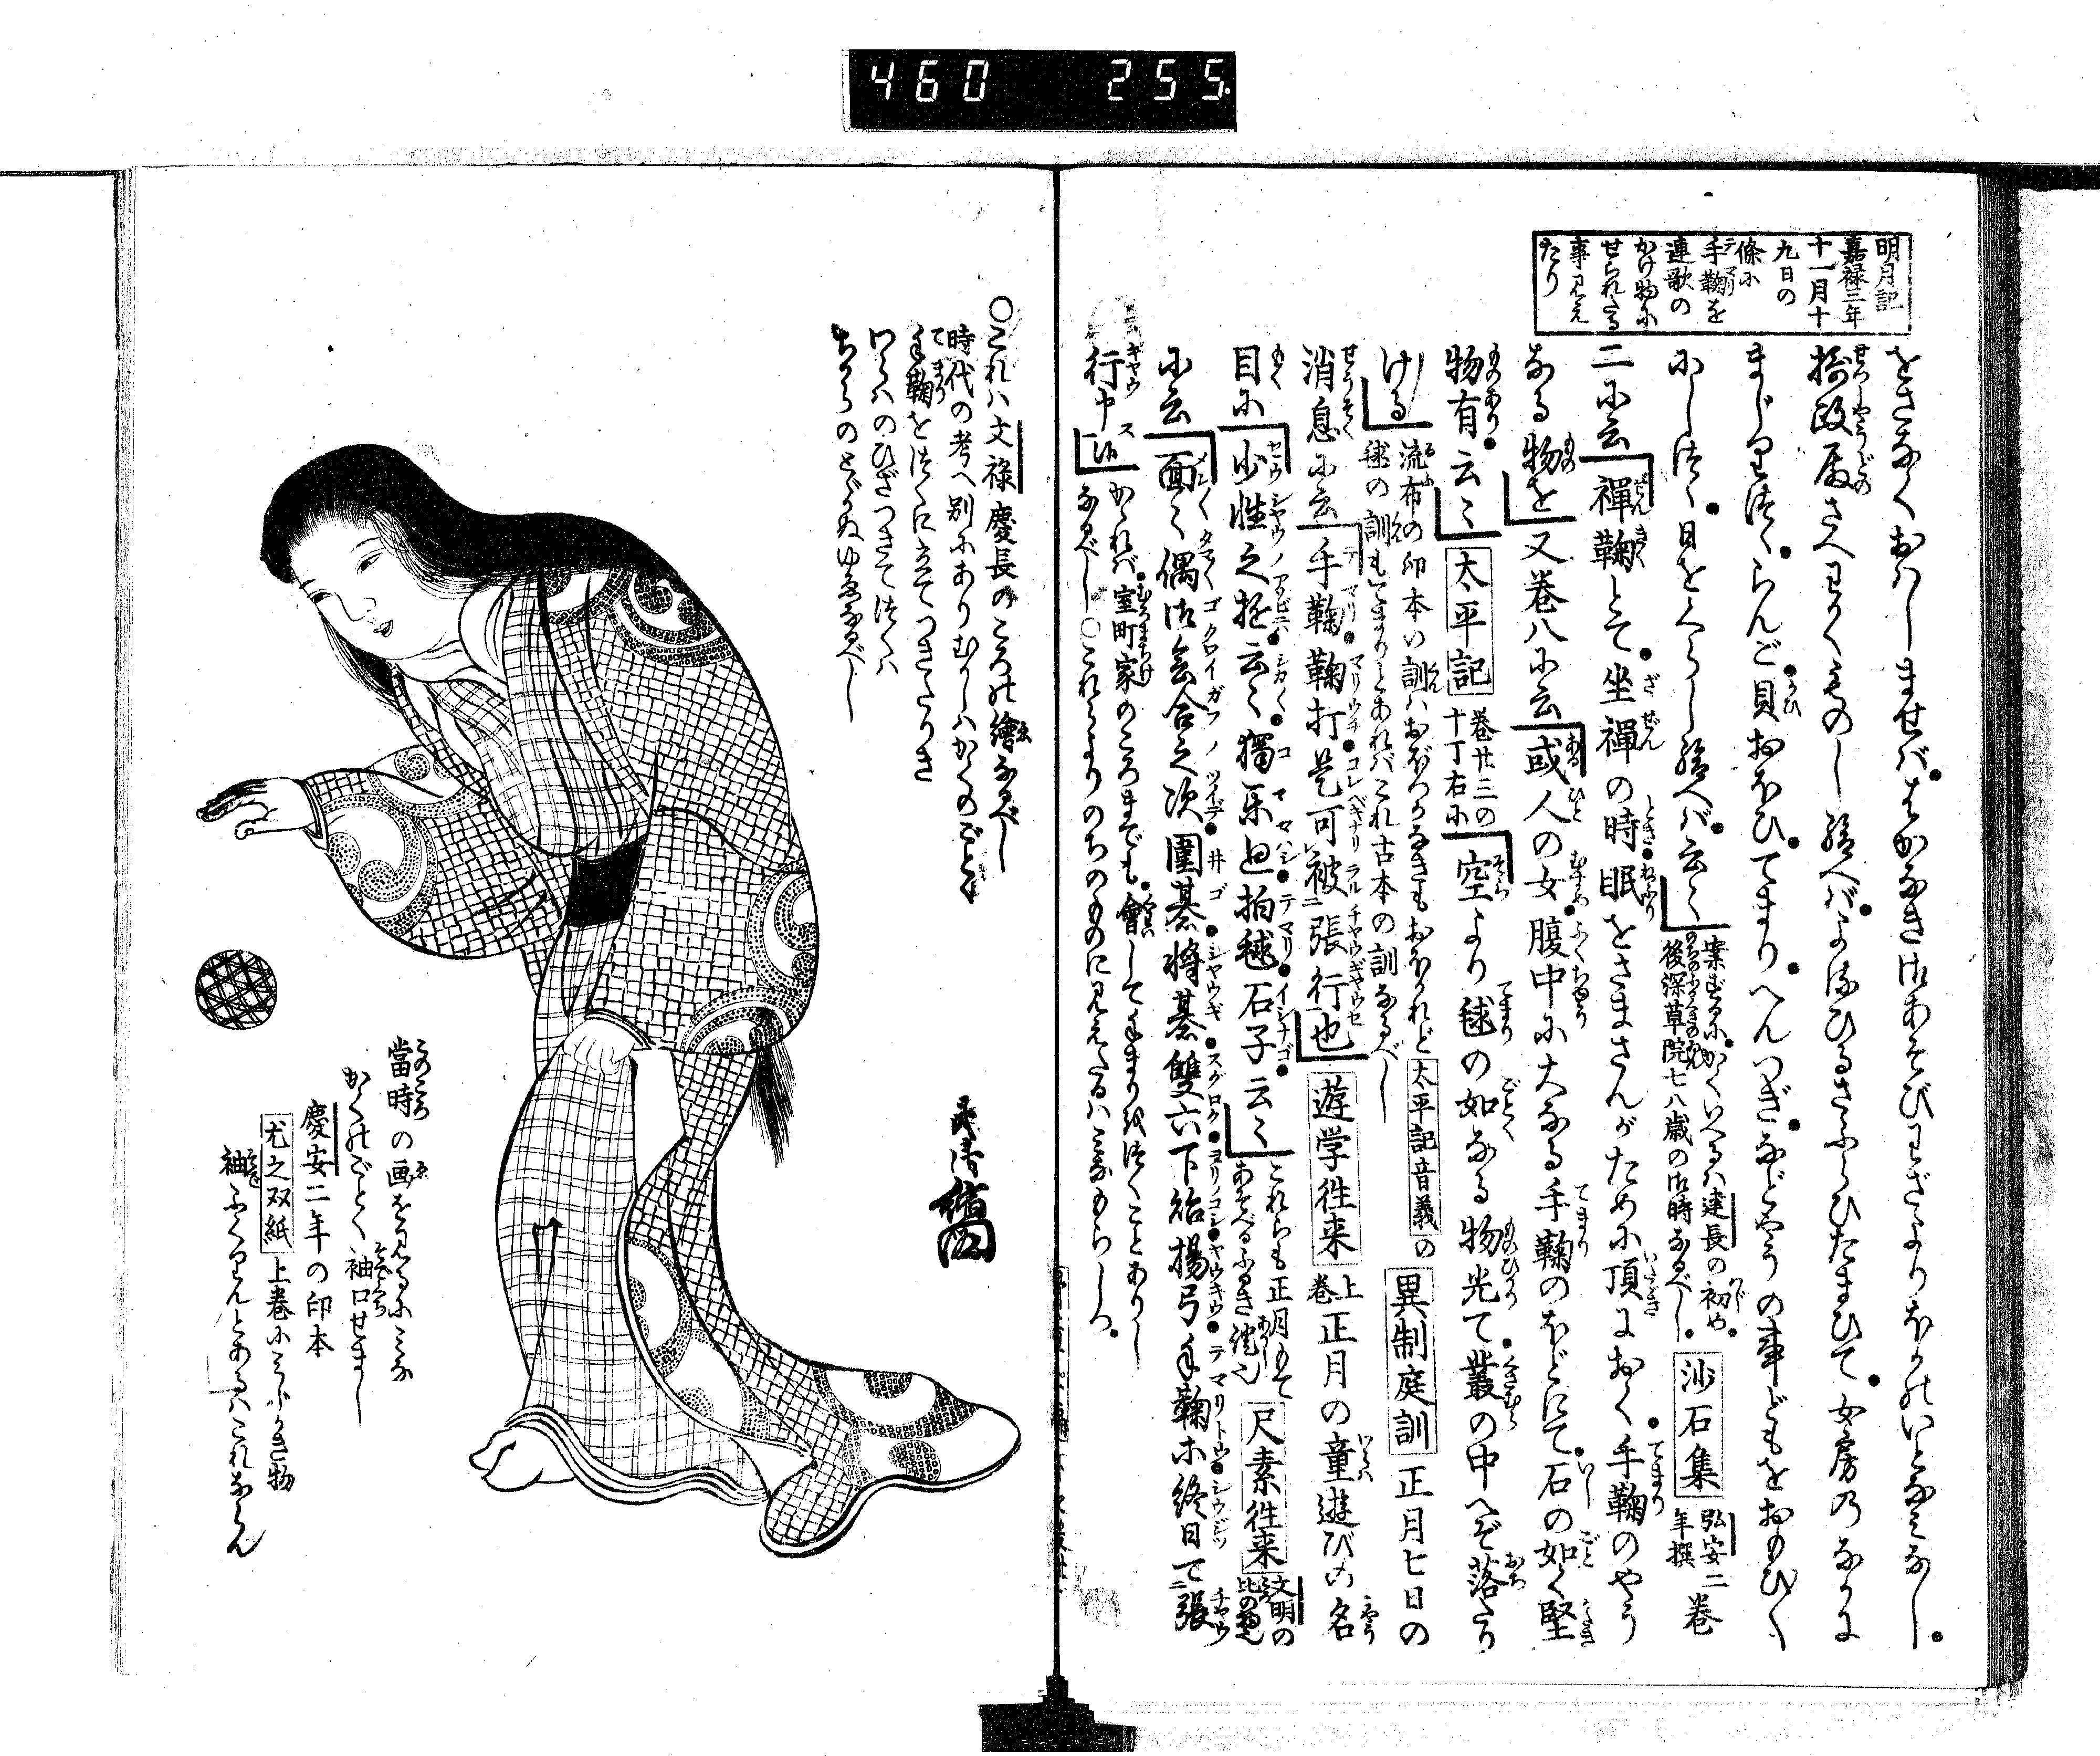 460 255
明月記
嘉禄三年
十一月十
九日の
條に
手鞠を
連歌の
かけ物に
せられたる
事見え
たり
をさなくおはしませばはかなき御あそびわざよりほかのいとなみなし
摂政殿さへわかくものし給へばよるひるさふらひたまひて女房のなかに
まじりつゝらんご貝おほひてまりへんつぎなどやうの事どもをおもひ〱
にしつゝ日をくらし給へば云云
案ずるにかくいへるは建長の初め
後深草院七八歳の御時なるべし
沙石集
弘安二
年撰
巻
二に云禪鞠とて坐禪の時眠をさまさんがために頂におく手鞠のやう
なる物を又巻八に云或人の女腹中に大なる手鞠のほどにて石の如く堅
物有云云
太平記
巻廿三の
十丁右に
空より毬の如なる物光て叢の中へぞ落たり
ける
流布の印本の訓はおぼつかなきもおほかれど太平記音義の
毬の訓もてまりとあればこれ古本の訓なるべし
異制庭訓
正月七日の
消息に云手鞠鞠打是可被張行也
遊学往来
上
巻
正月の童遊びの名
目に少性之遊云云獨楽廻拍毬石子云云
これらも正月もて
あそべるふるき證也
尺素往来
文明の
比の書也
に云面〻偶御会合之次囲碁将棊雙六下給揚弓手鞠木終日可張
行申候
かゝれば室町家のころまでも會して手まりをつくことありし
なるべし○これよりのちのものに見えたるはみなもらしつ
○これは文禄慶長のころの繪なるべし
時代の考へ別にありむかしはかくのごとく
手鞠をつくに立てつきたりき
今はのひざつきてつくは
ちからのとゞかぬゆゑなるべし
當時の画を見るにみな
かくのごとく袖口せまし
慶安二年の印本
尤之双紙上巻にみじかき物
袖ふくりんとあるはこれならん